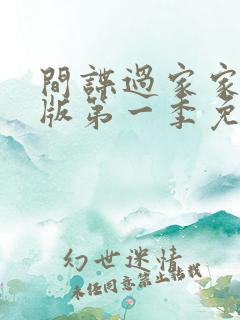 間諜過家家
版第一季免
幻世迷情
未经同意禁止转载